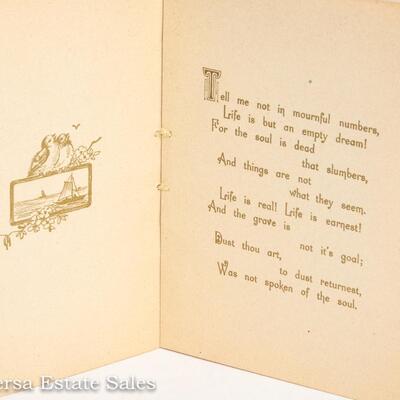 Tell me not in mournful numbers,
Life is but an empty dream!
For the soul is dead
that slumbers,
And things are not
what they seem.
Life is real! Life is earnest!
And the grave is
not it's goal;
Dust thou art,
to dust returnest,
Was not spoken of the soul.
ersa Estate Sales